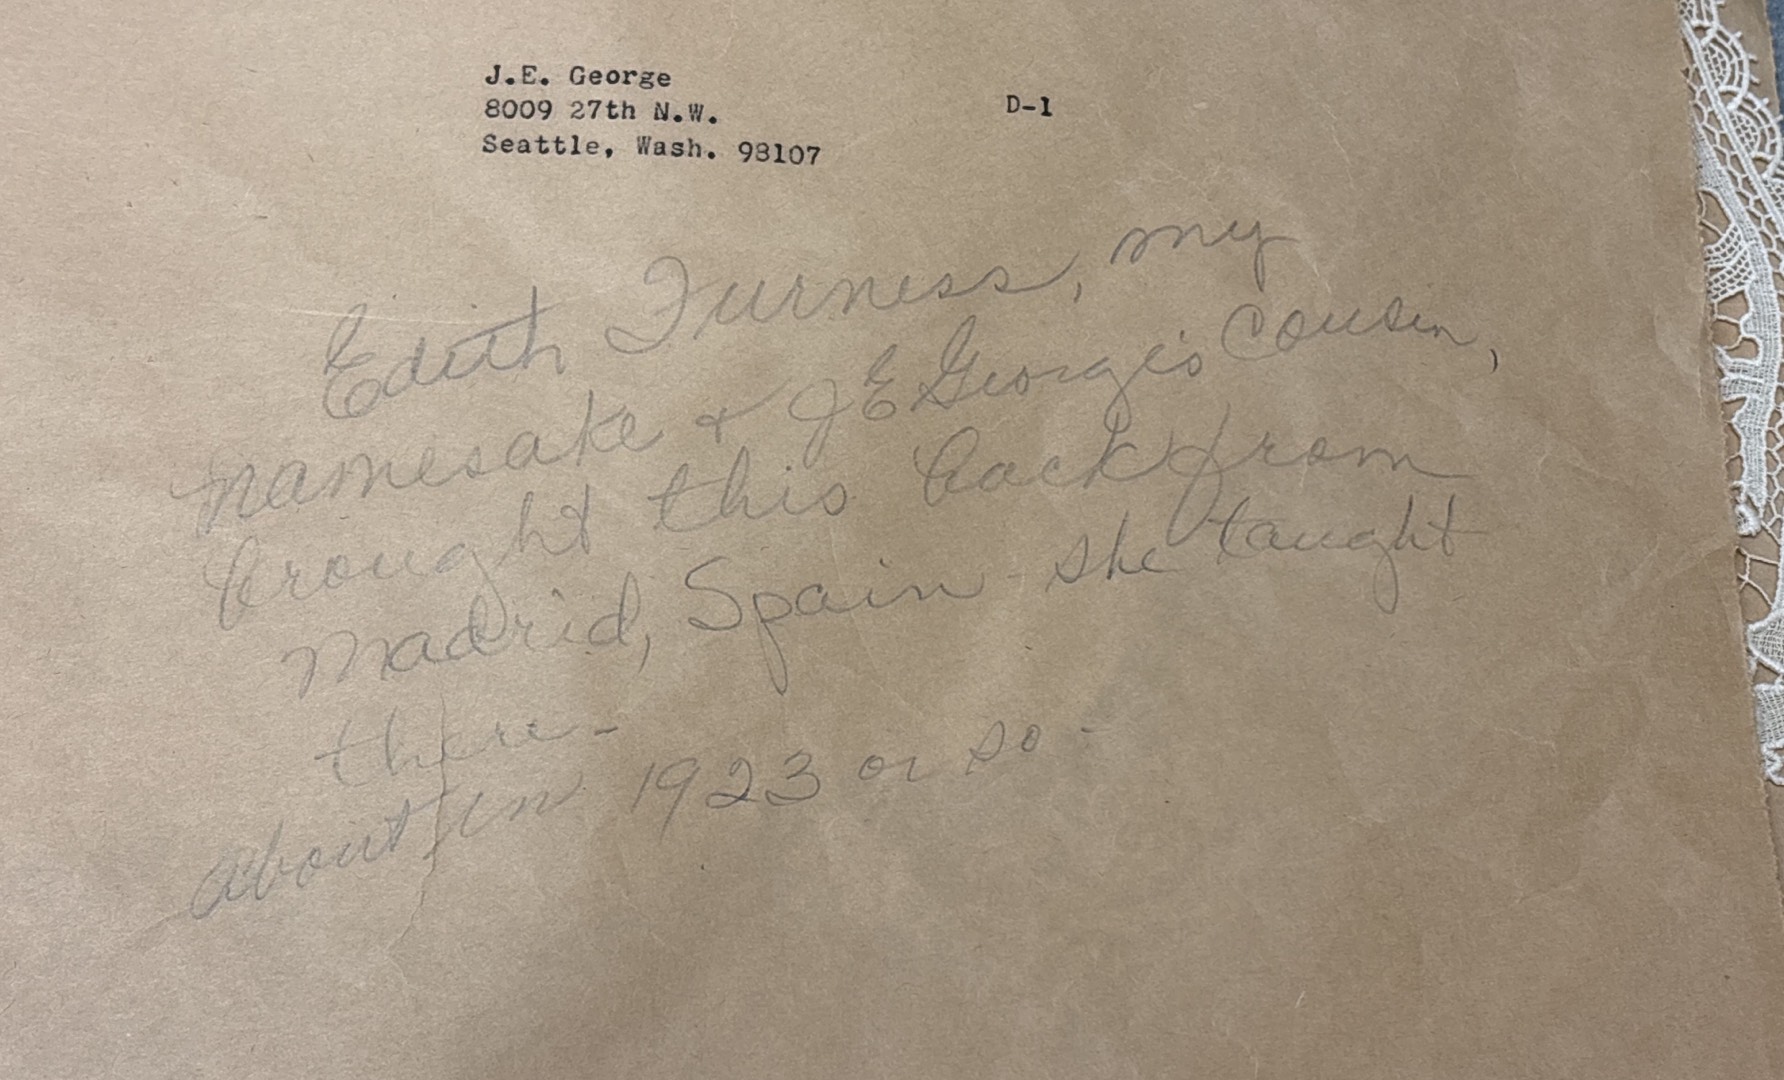 J.E. George
8009 27th N.W.
D-1
Seattle, Wash. 98107
Edith Furness, my
namesake + JE George's cousin,
brought this back from
Madrid, Spain - she taught
there -
about in 1923 or so -